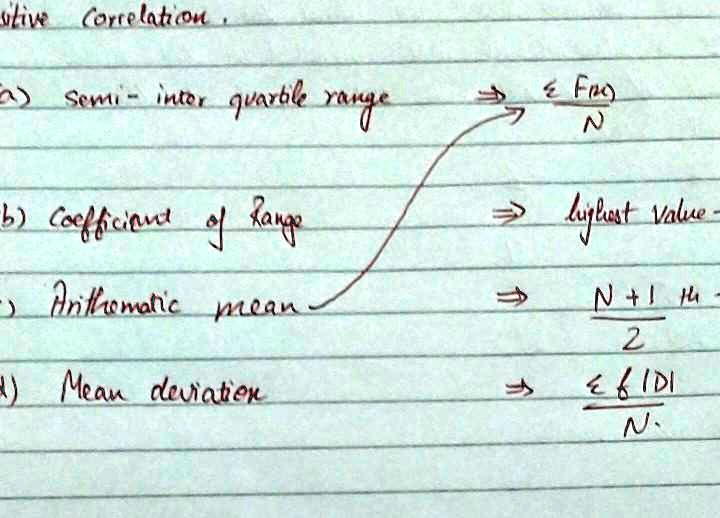 sitive Correlation.
a) Semi-inter quartile range ⇒ Σ F(x)
N
b) Coefficient of Range ⇒ highest value -
) Arithematic mean ⇒ N + 1 th -
2
d) Mean deviation ⇒ Σ f |D|
N.